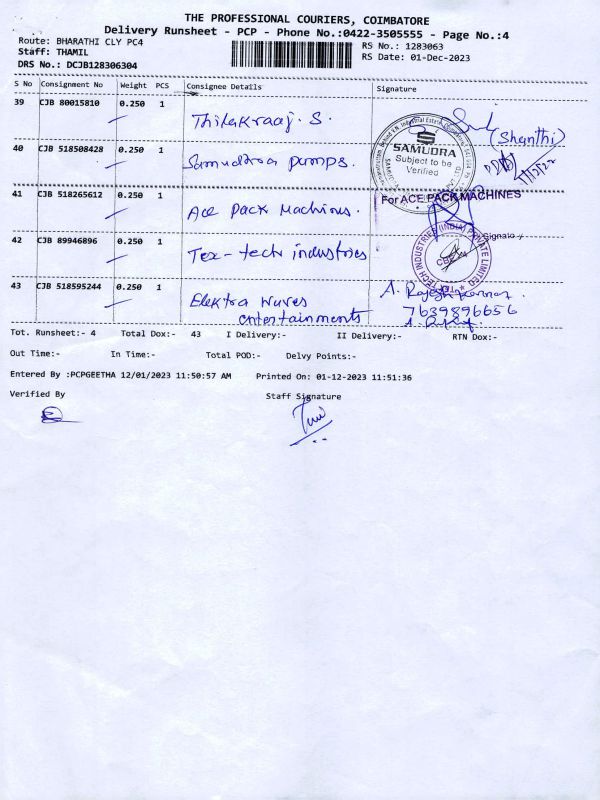 THE PROFESSIONAL COURIERS, COIMBATORE
Delivery Runsheet - PCP - Phone No.:0422-3505555 - Page No.:4
Route: BHARATHI CLY PC4
RS No.: 1283063
Staff: THAMIL
RS Date: 01-Dec-2023
DRS No.: DCJB128306304
S No Consignment No Weight PCS Consignee Details Signature
39 CJB 80015810 0.250 1 Thilakraaj. S. (Shanthi)
40 CJB 518508428 0.250 1 Samudra pumps.
SAMUDRA
Subject to be
Verified
41 CJB 518265612 0.250 1 Ace pack Machines.
For ACE PACK MACHINES
42 CJB 89946896 0.250 1 Tex-tech industries
TECH INDUSTRIES (INDIA) PRIVATE LIMITED
43 CJB 518595244 0.250 1 Elektra waves
entertainments
7639896656
Tot. Runsheet:- 4 Total Dox:- 43 I Delivery:- II Delivery:- RTN Dox:-
Out Time:- In Time:- Total POD:- Delvy Points:-
Entered By :PCPGEETHA 12/01/2023 11:50:57 AM Printed On: 01-12-2023 11:51:36
Verified By Staff Signature